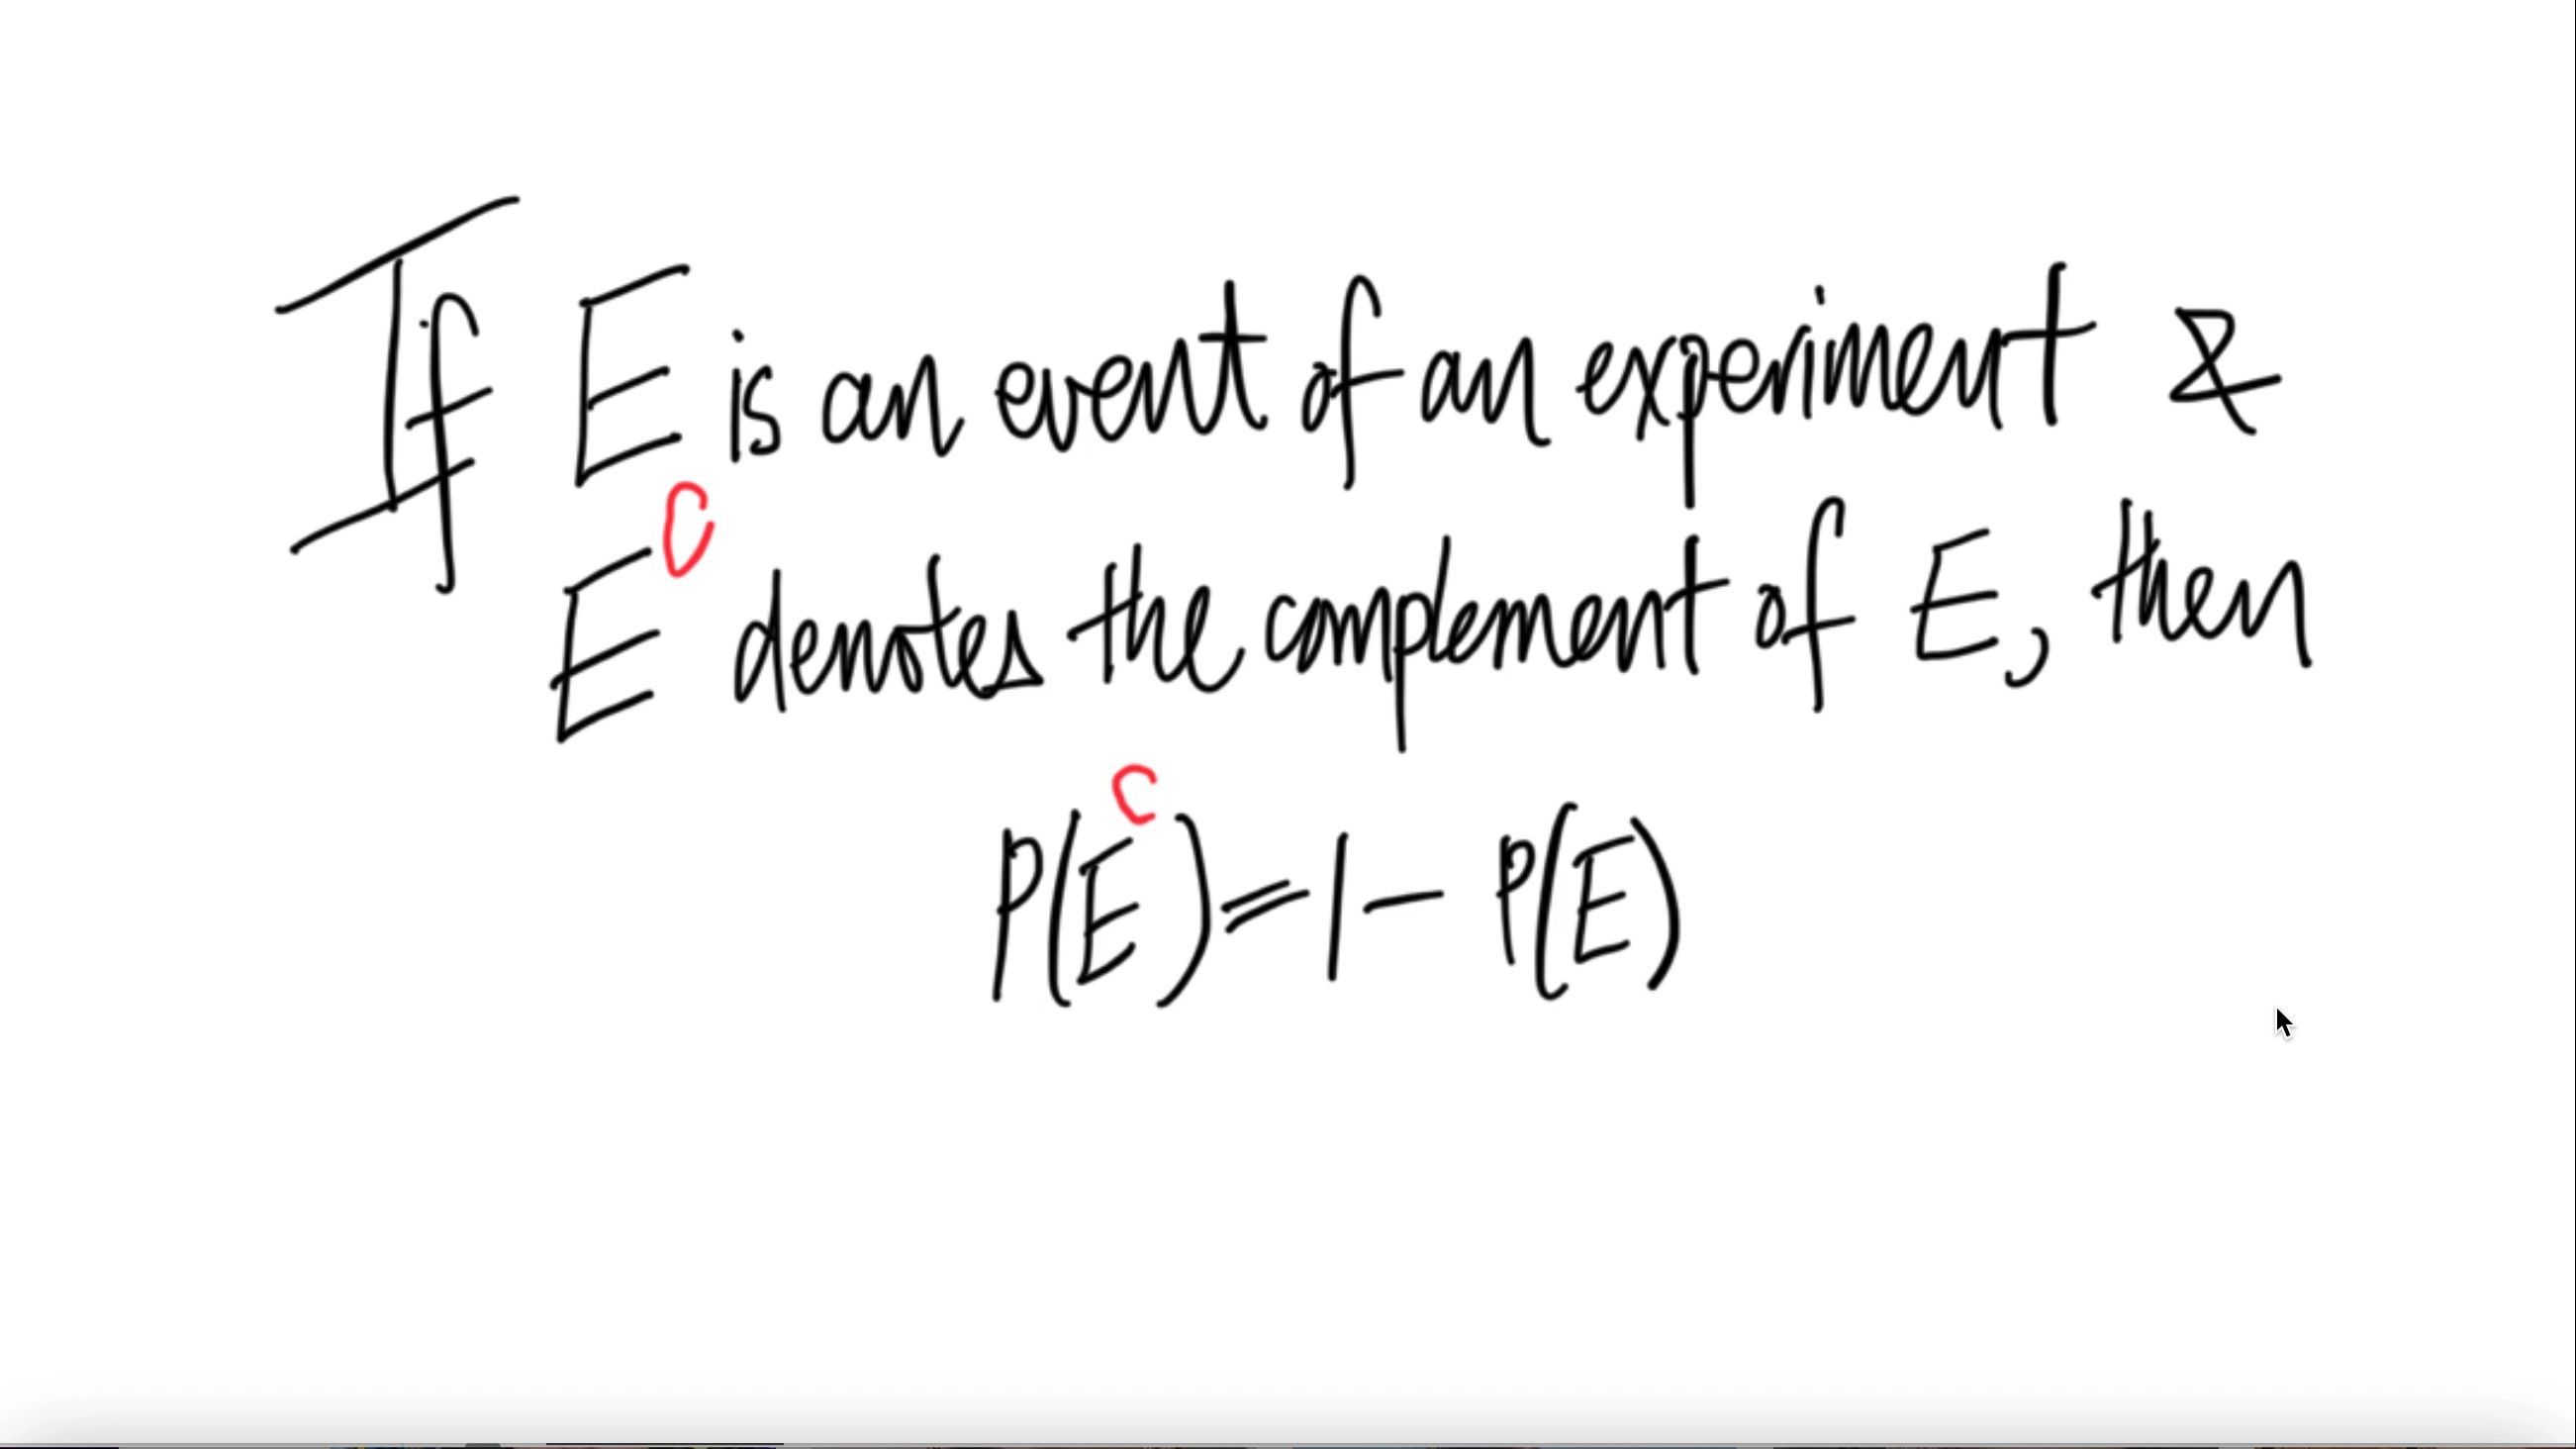 If E is an event of an experiment &
E^C denotes the complement of E, then
P(E^C) = 1 - P(E)